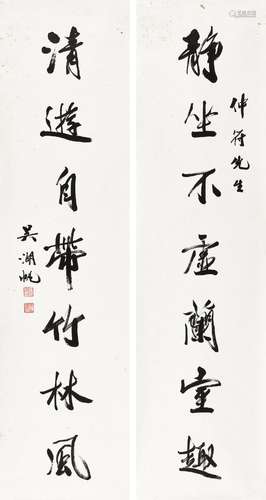 静坐不虚蘭室趣
仲符先生
清遊自帶竹林風
吴湖帆